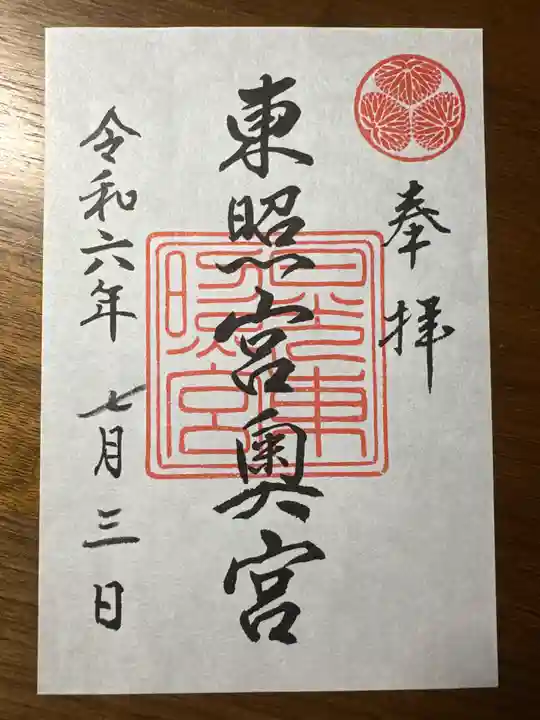 奉拝
東照宮奥宮
日光東照宮
令和六年 七月三日